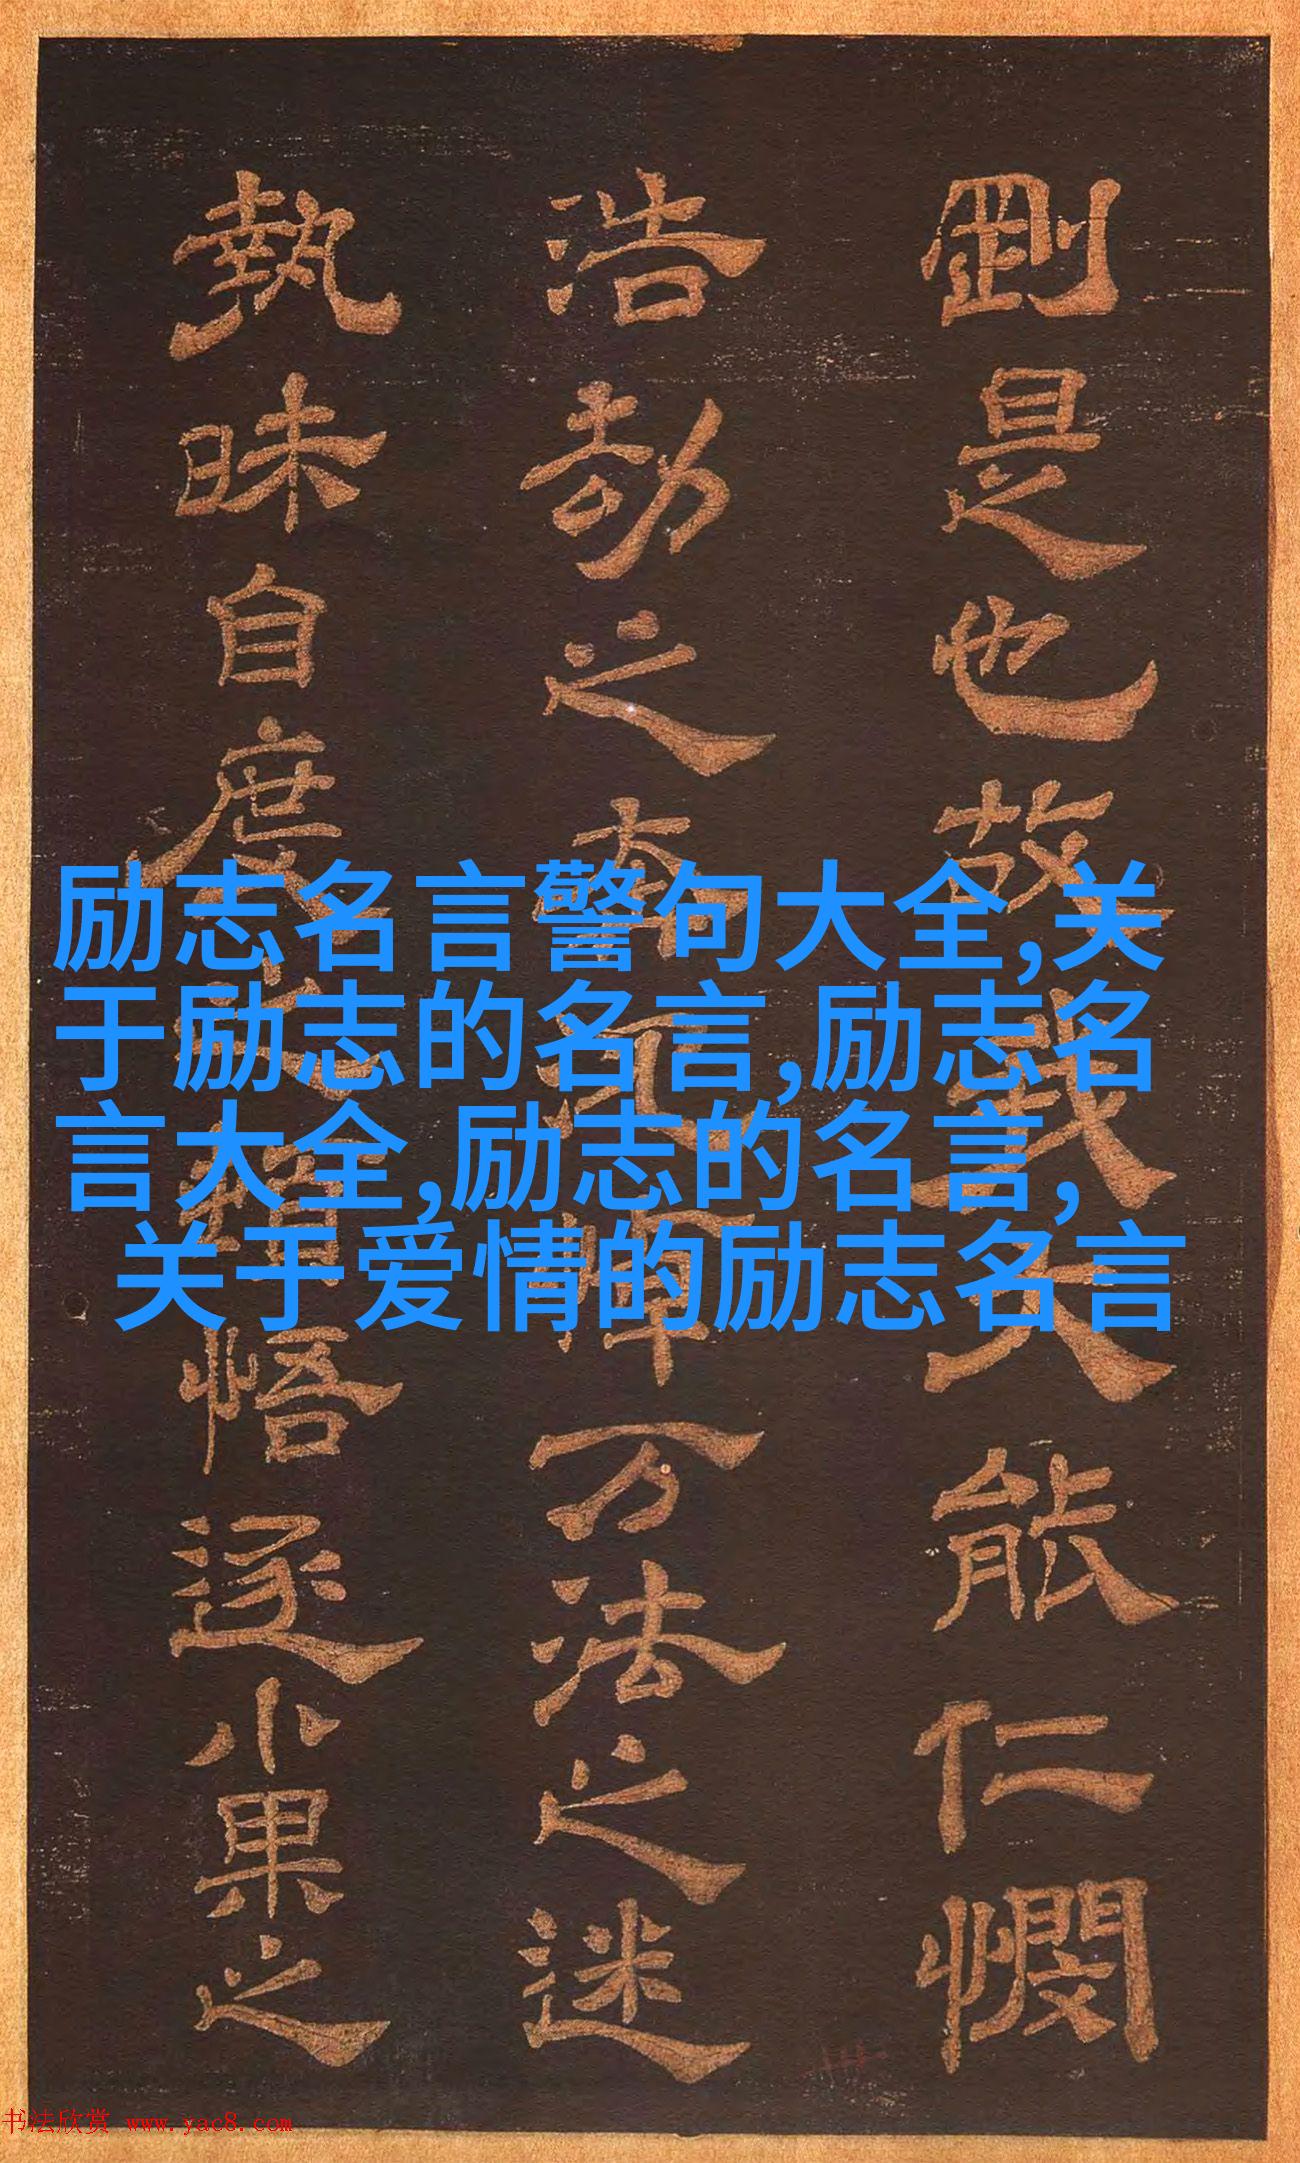 剛是也故義大能仁憫
浩劫之
万法之迷
執昧自度
悟逐小果之
励志名言警句大全,关
于励志的名言,励志名
言大全,励志的名言,
关于爱情的励志名言
书法欣赏 www.yac8.com